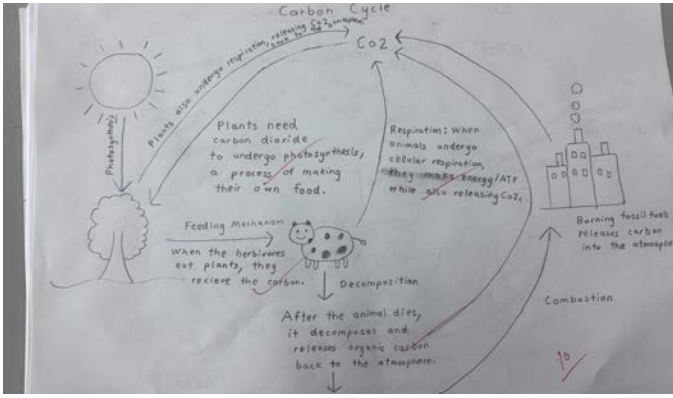 Carbon Cycle
Plants also undergo respiration, releasing Co2
back to the atmosphere.
Co2
Photosynthesis
Plants need
carbon dioxide
to undergo photosynthesis,
a process of making
their own food.
Respiration: When
animals undergo
cellular respiration,
they make energy/ATP
while also releasing Co2.
Feeding Mechanism
When the herbivores
eat plants, they
recieve the carbon.
Decomposition
After the animal dies,
it decomposes and
releases organic carbon
back to the atmosphere.
Burning fossil fuels
releases carbon
into the atmosphe
Combustion
10